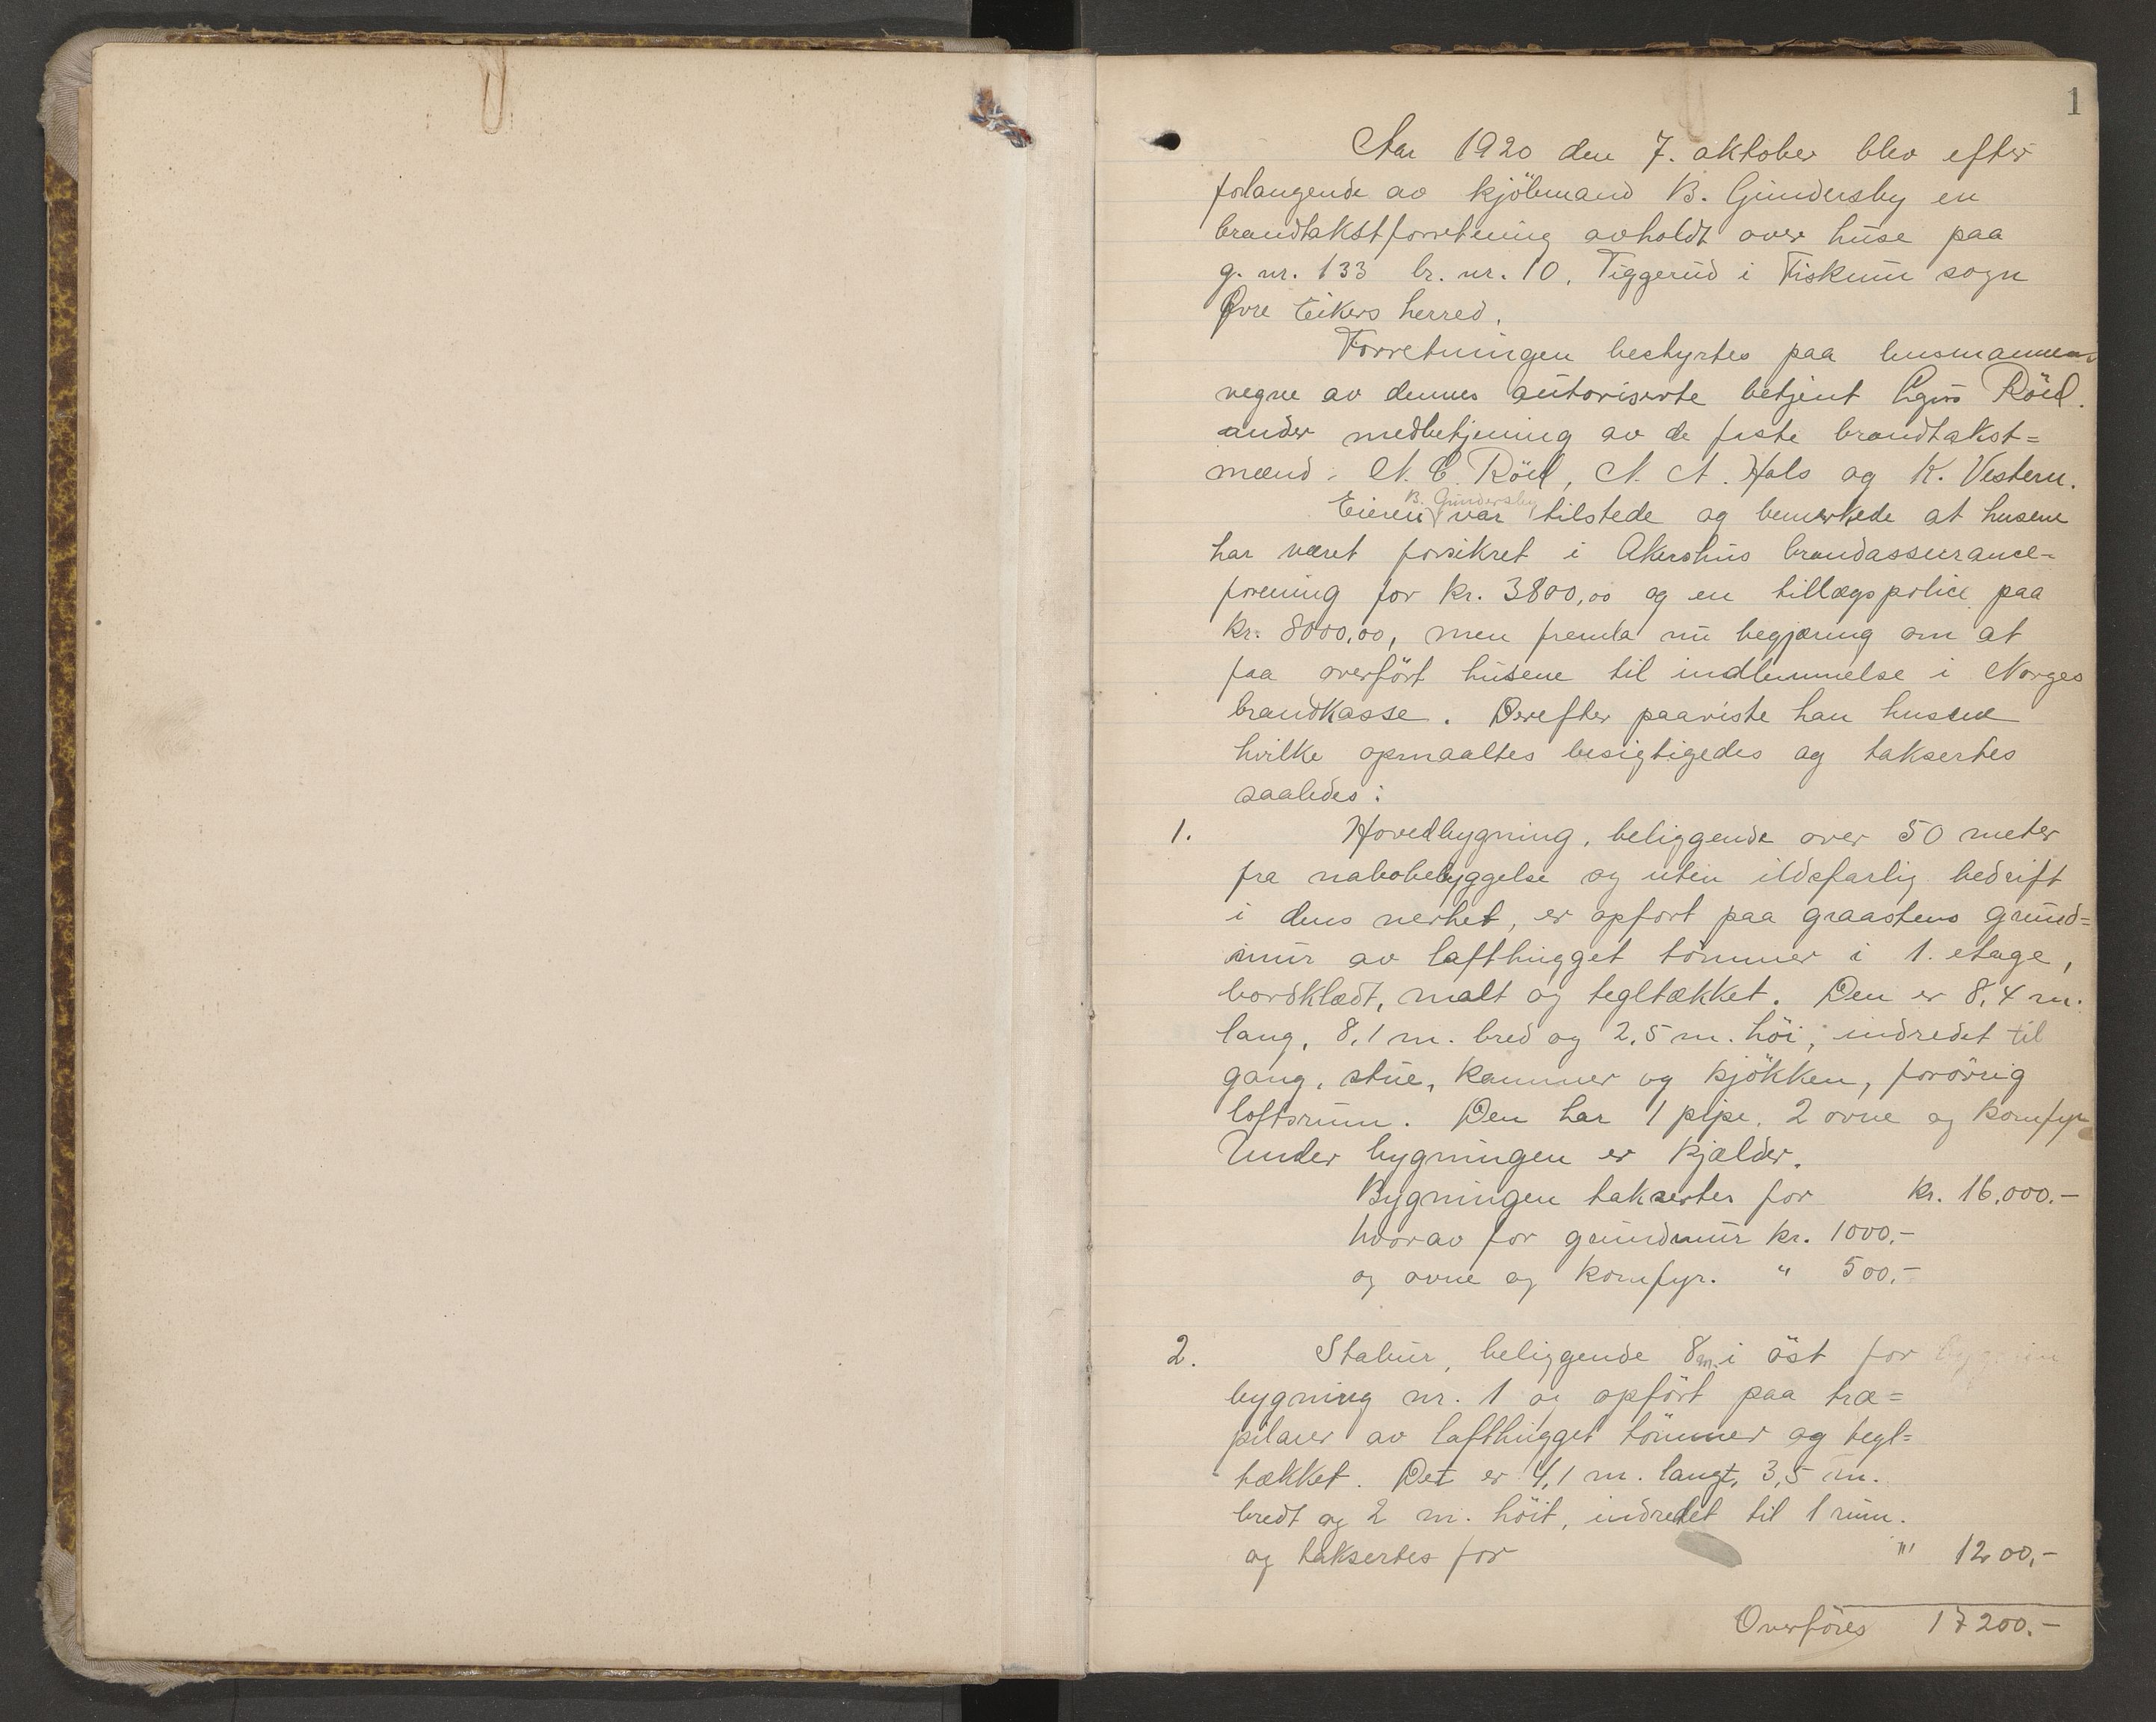 1
Aar 1920 den 7. oktober blev efter
forlangende av kjöbmand B. Gundersby en
brandtakstforretning avholdt over huse paa
g. nr. 133 br. nr. 10, Tiggerud i Fiskum sogn
Øvre Eikers herred.
Forretningen bestyrtes paa lensmannens
vegne av dennes autoriserte betjent Röed
under medbetjening av de faste brandtakst=
mænd: N. C. Röed, A. A. Hals og K. Vestern.
B. Gundersby
Eieren var tilstede og bemerkede at husene
har været forsikret i Akershus brandassurance-
forening for kr. 3800,00 og en tillægspolice paa
kr. 8000,00, men fremla nu begjæring om at
faa overfört husene til indlemmelse i Norges
brandkasse. Derefter paaviste han husene
hvilke opmaaltes besigtigedes og taksertes
saaledes:
1. Hovedbygning, beliggende over 50 meter
fra nabobebyggelse og uten ildsfarlig bedrift
i dens nerhet, er opfört paa graastens grund=
mur av lafthugget tömmer i 1. etage,
bordklædt, malt og tegltækket. Den er 8,4 m.
lang, 8,1 m. bred og 2,5 m. höi, indredet til
gang, stue, kammer og kjökken, forövrig
loftsrum. Den har 1 pipe, 2 ovne og komfyr
Under bygningen er kjælder.
Bygningen taksertes for kr. 16,000.-
hvorav for grundmur kr. 1000.-
og ovne og komfyr. " 500.-
2. Stabur, beliggende 8 m. i öst for
bygning nr. 1 og opfört paa træ=
pilarer av lafthugget tömmer og tegl=
tækket. Det er 4,1 m. langt, 3,5 m.
bredt og 2 m. höit, indredet til 1 rum.
og taksertes for " 1200.-
Overföres 17200.-